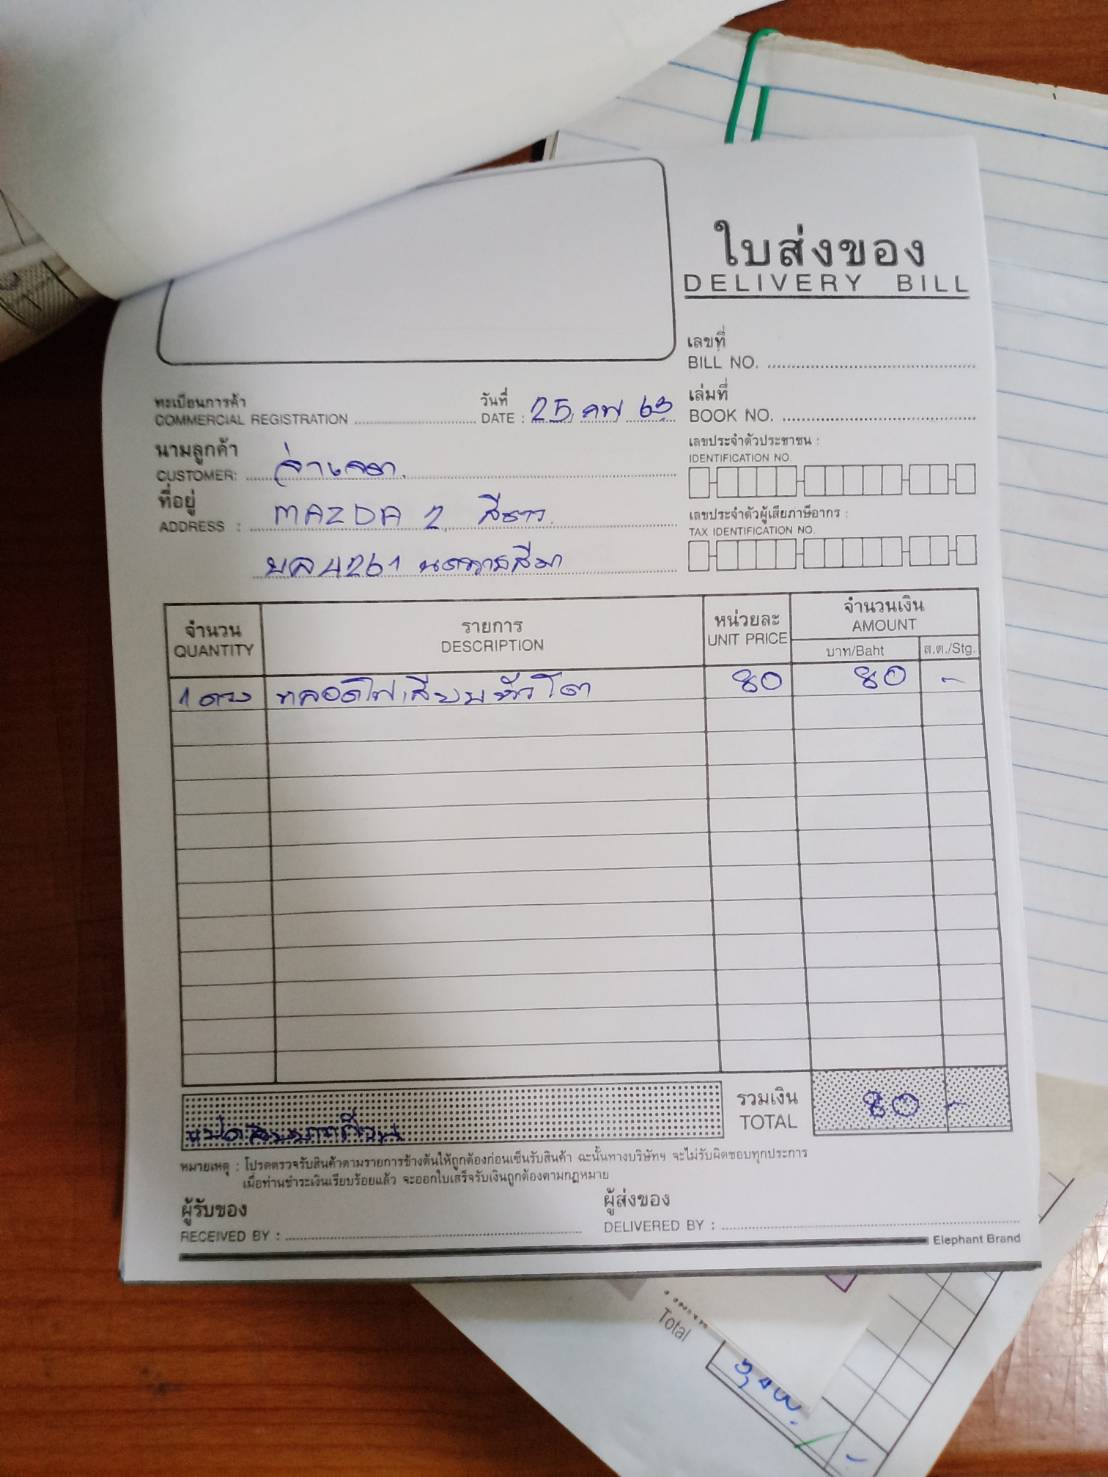 ใบส่งของ
DELIVERY BILL
เลขที่
BILL NO.
ทะเบียนการค้า
COMMERCIAL REGISTRATION
วันที่
DATE : 25 กพ 63
เล่มที่
BOOK NO.
นามลูกค้า
CUSTOMER:
เลขประจำตัวประชาชน :
IDENTIFICATION NO.
ที่อยู่
ADDRESS : MAZDA 2 สีขาว
4261 นครราชสีมา
เลขประจำตัวผู้เสียภาษีอากร :
TAX IDENTIFICATION NO.
จำนวน รายการ หน่วยละ จำนวนเงิน
QUANTITY DESCRIPTION UNIT PRICE AMOUNT
บาท/Baht ส.ต./Stg.
1 ดวง หลอดไฟเสียบหัวโต 80 80 -
รวมเงิน
TOTAL 80 -
แปดสิบบาทถ้วน
หมายเหตุ : โปรดตรวจรับสินค้าตามรายการข้างต้นให้ถูกต้องก่อนเซ็นรับสินค้า ฉะนั้นทางบริษัทฯ จะไม่รับผิดชอบทุกประการ
เมื่อท่านชำระเงินเรียบร้อยแล้ว จะออกใบเสร็จรับเงินถูกต้องตามกฎหมาย
ผู้รับของ
RECEIVED BY :
ผู้ส่งของ
DELIVERED BY :
Elephant Brand
Total